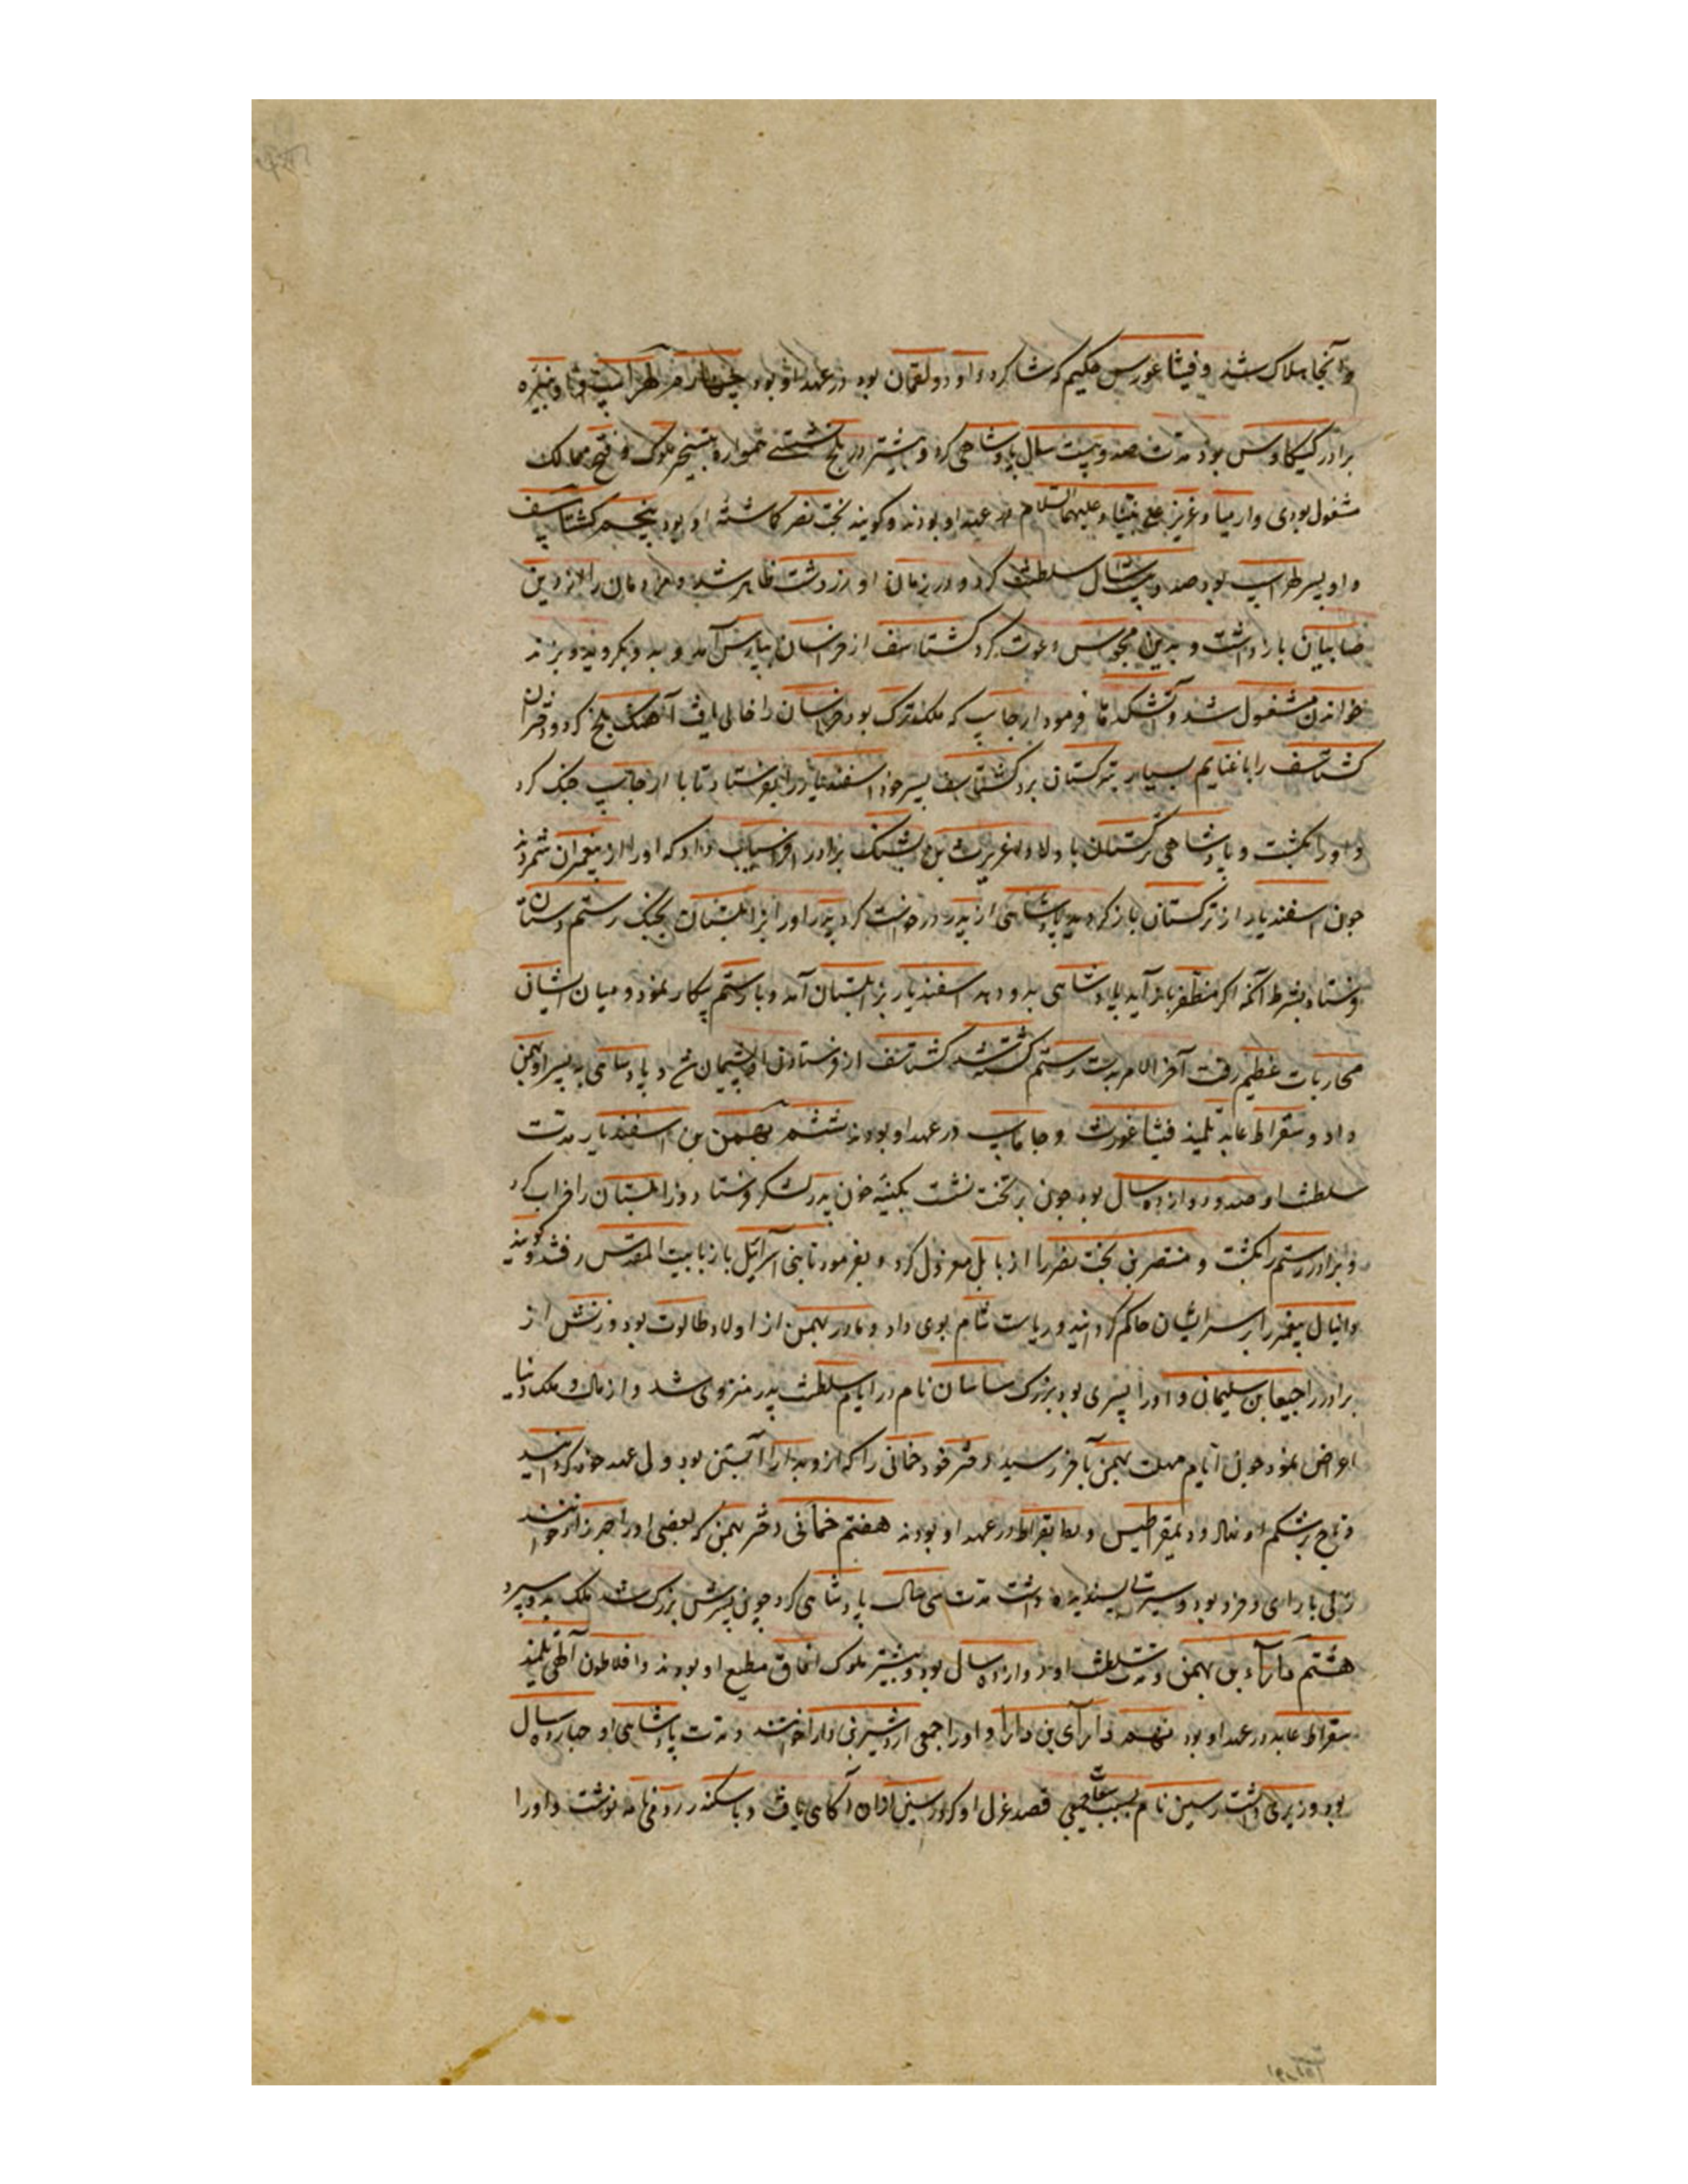 و آنجا هلاک شد و فیثاغورس حکیم که شاکرد داود و لقمان بود در عهد او بود چهارم لهراسب و او نبیره
برادر کیکاوس بود مدت صد و بیست سال پادشاهی کرد و بیشتر در بلخ نشستی همواره بتسخیر ملوک و فتح ممالک
مشغول بودی و ارمیا و عزیر علی نبینا و علیهما السلام در عهد او بودند و کویند بخت نصر کماشته او بود پنجم کشتاسف
و او پسر لهراسب بود صد و بیست سال سلطنت کرد و در زمان او زردشت ظاهر شد و مردمان را از دین
صابیان باز داشت و بدین مجوس دعوت کرد کشتاسف از خراسان بپارس آمد و بدو بکروید و بزند
خواندن مشغول شد و آتشکدها فرمود ارجاسب که ملک ترک بود خراسان را خالی یافت آهنک بلخ کرد و دختران
کشتاسف را با غنایم بسیار بترکستان برد کشتاسف پسر خود اسفندیار را بفرستاد تا با ارجاسب جنک کرد
و او را بکشت و پادشاهی ترکستان باولاد اغریرث بن پشنک برادر افراسیاب داد که او را از پیغمبران شمردند
چون اسفندیار از ترکستان باز کردید پادشاهی از پدر درخواست کرد پدر او را بزابلستان بجنک رستم دستان
فرستاد بشرط آنکه اکر مظفر باز آید پادشاهی بدو دهد اسفندیار بزابلستان آمد و با رستم پیکار نمود و میان ایشان
محاربات عظیم رفت آخر الامر بدست رستم کشته شد کشتاسف از فرستادن او پشیمان شد و پادشاهی به پسر او بهمن
داد و سقراط عابد تلمیذ فیثاغورث و جاماسب در عهد او بودند ششم بهمن بن اسفندیار مدت
سلطنت او صد و دوازده سال بود چون بر تخت نشست بکینه خون پدر لشکر فرستاد و زابلستان را خراب کرد
و برادر رستم را بکشت و منتصر بن بخت نصر را از بابل معزول کرد و بفرمود تا بنی اسرائیل باز با بیت المقدس رفتند و کویند
دانیال پیغمبر را بر اسرائیلیان حاکم کردانید و ریاست شام بوی داد و مادر بهمن از اولاد طالوت بود و زنش از
برادر راجیعا بن سلیمان و او را پسری بود بزرک ساسان نام در ایام سلطنت پدر منزوی شد و از مال و ملک دنیا
اعراض نمود چون ایام مهلت بهمن بآخر رسید دختر خود خمانی را که ازو بدارا آبستن بود ولی عهد خود کردانید
و تاج بر شکم او نهاد و دیمقراطیس و بقراط در عهد او بودند هفتم خمانی دختر بهمن که بعضی او را چهرزاد خوانند
زنی با رای و خرد بود و سیرتی پسندیده داشت مدت سی سال پادشاهی کرد چون پسرش بزرک شد ملک بدو سپرد
هشتم دارا بن بهمن و مدت سلطنت او دوازده سال بود و بیشتر ملوک آفاق مطیع او بودند و افلاطون الهی تلمیذ
سقراط عابد در عهد او بود نهم دارای بن دارا و او را جمعی اردشیر بن دارا خوانند و مدت پادشاهی او چهارده سال
بود وزیری داشت رسین نام بسبب قصد عزل او کرد رسین از آن آکاهی یافت و با سکندر رومی نامه نوشت و او را